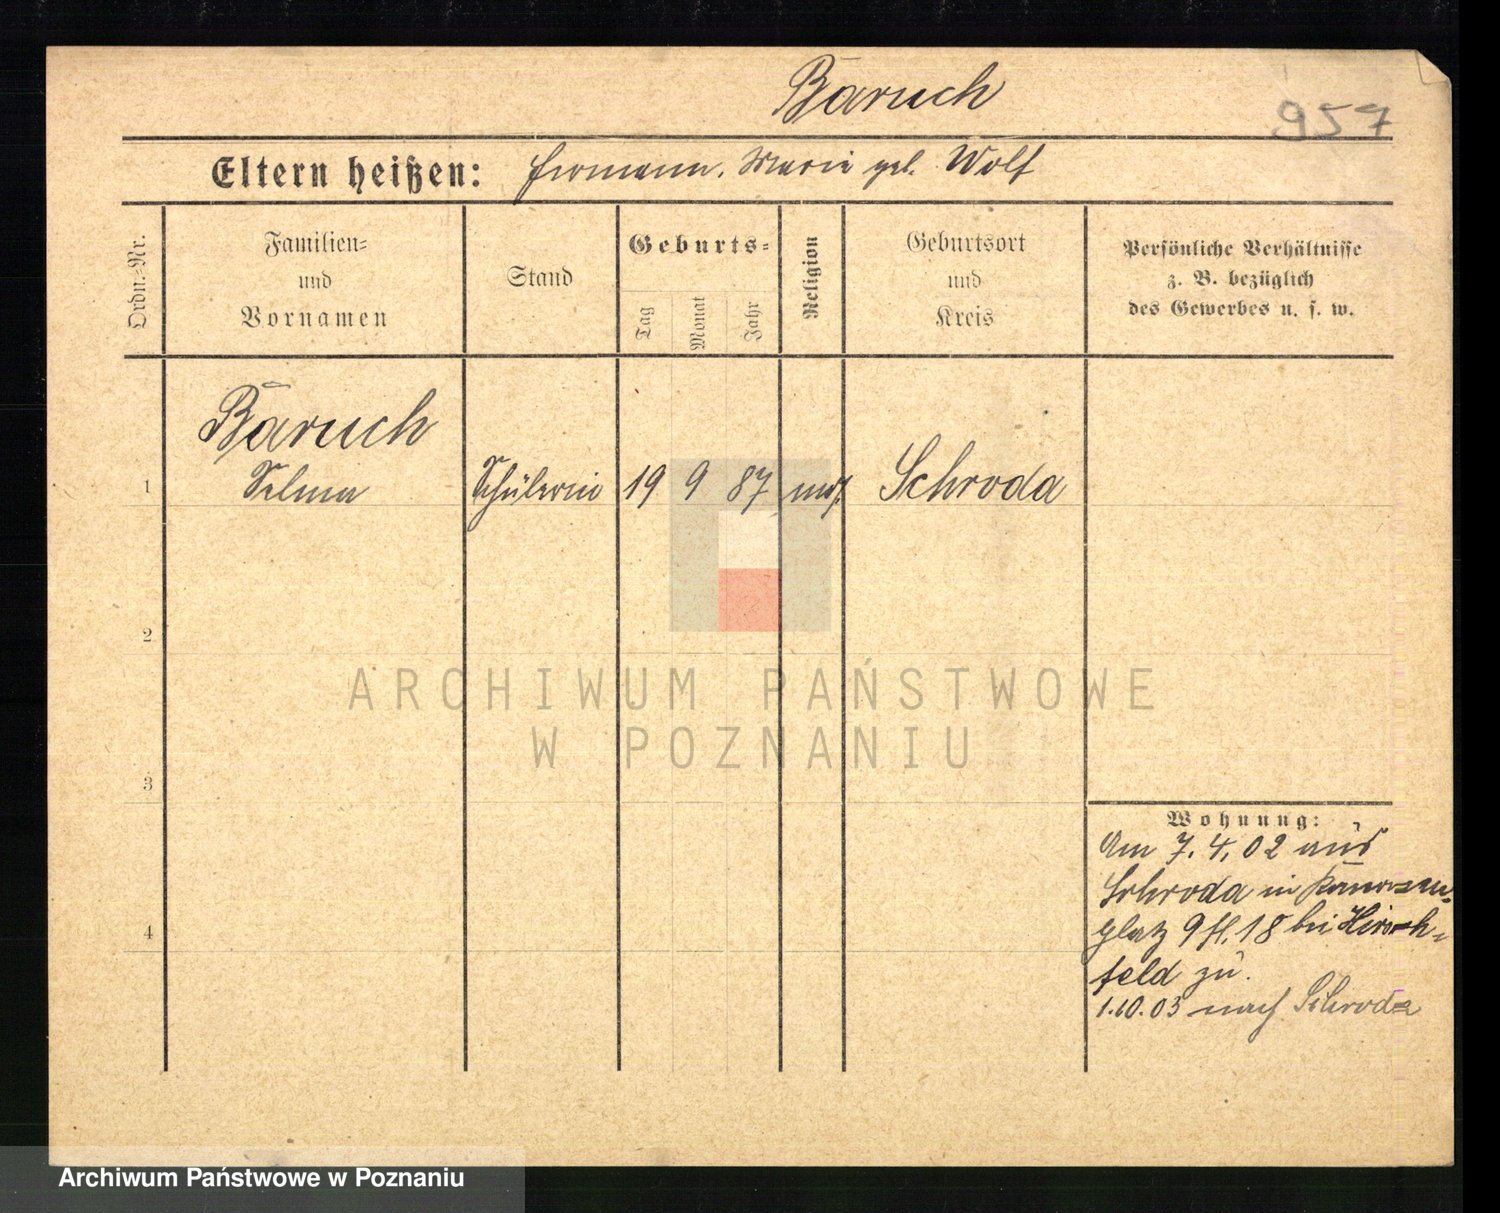 Baruch
957
Eltern heißen: Hermann. Marie geb. Wolf
Ordn.-Nr.
Familien-
und
Vornamen
Stand
Geburts-
Tag
Monat
Jahr
Religion
Geburtsort
und
Kreis
Persönliche Verhältnisse
z. B. bezüglich
des Gewerbes u. s. w.
Baruch
1 Selma Schülerin 19 9 87 mos. Schroda
2
3
4
Wohnung:
Am 7. 4. 02 aus
Schroda in
platz 9 II. 18 bei Hirsch-
feld zu.
1.10.03 nach Schroda
ARCHIWUM PAŃSTWOWE
W POZNANIU
Archiwum Państwowe w Poznaniu